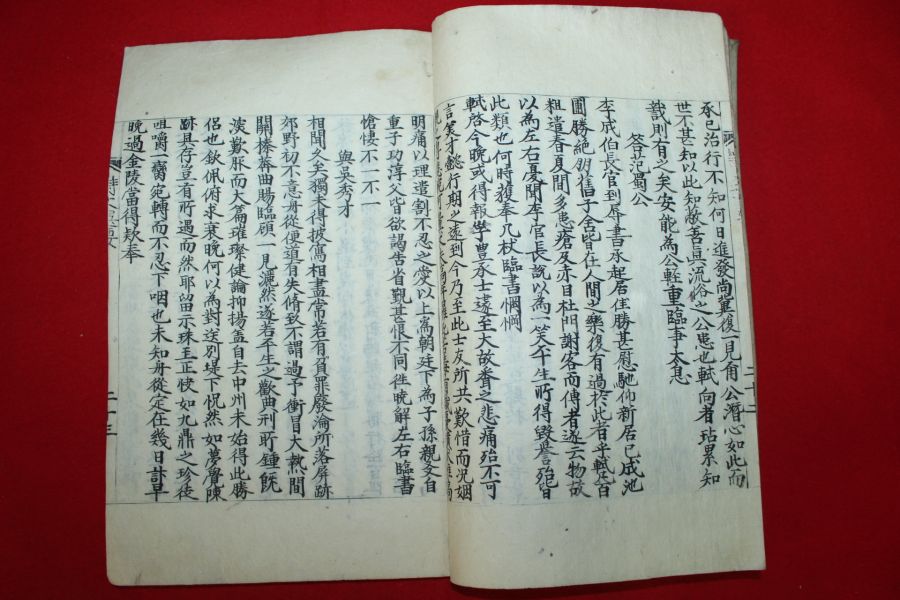 承已治行不知何日進發尚冀復一見甭公濟心如此而
世不甚知以此知敝吾眞流俗之公患也軾向者玷累知
識則有之矣安能為公輊重臨事太息
答范蜀公
李成伯長官到辱書承起居佳勝甚慰馳仰新居已成池
圃勝絶朋舊子舍皆在人間之樂復有過於此者乎軾凢百
粗遣春夏間多患瘡及赤目杜門謝客而傳者遂云物故
以為左右憂聞李官長說以為一笑平生所得毀譽殆皆
此類也何時獲奉几杖臨書惘惘
軾啓今晩或得報
豊承士遽至大故聞之悲痛殆不可
言美才懿行期之遠到今乃至此士友所共歎惜而況姻
明痛以理遣割不忍之愛以上為朝廷下為子孫親友自
重子功淳父皆欲謁告省覲甚恨不同徃晩解左右臨書
愴悽不一不一
與吳秀才
相聞久矣獨未得披寫相盡常若有負罪廢淪所落屏跡
郊野初不意舟從便道有失脩致不謂過予衝冒大熱間
關榛莾曲賜臨顧一見灑然遂若平生之歡典刑所鍾旣
深歎厭而大篇璀璨健論抑揚盖自去中州未始得此勝
侶也欽佩俯求衰晩何以為對送別堤下怳然如夢覺陳
跡具存豈有所遇而然耶留示珠玉正快如九鼎之珍徒
咀嚼一臠宛轉而不忍下咽也未知舟從定在幾日計早
晩過金陵當得欵奉
二十三